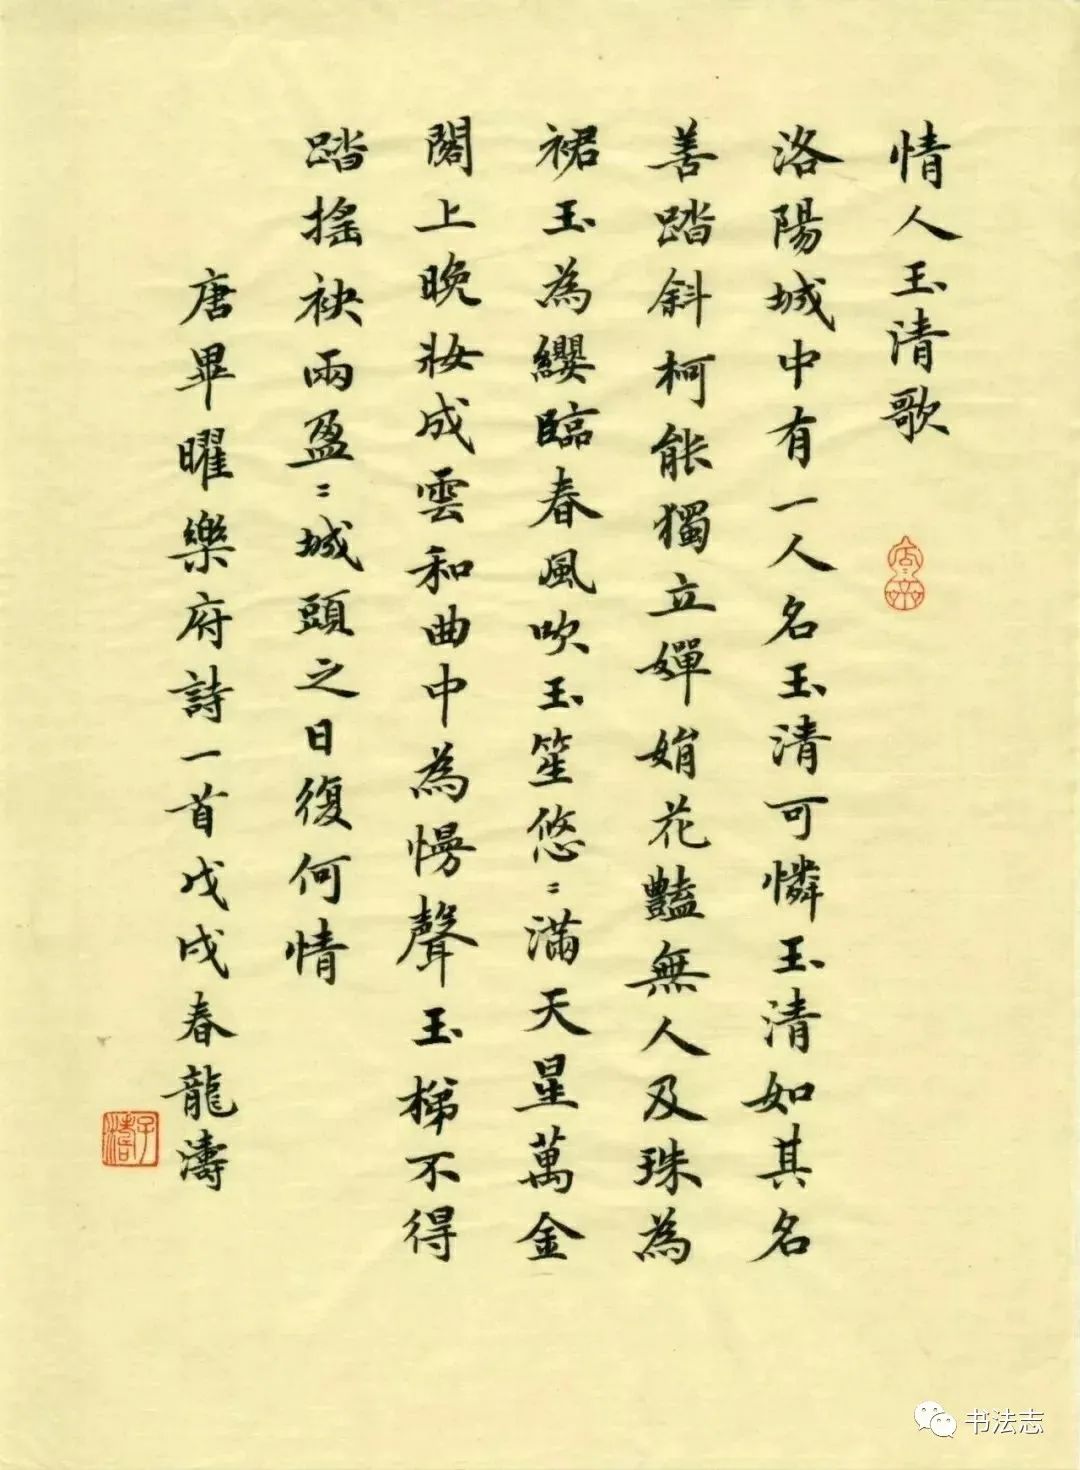 情人玉清歌
洛陽城中有一人名玉清可憐玉清如其名
善踏斜柯能獨立嬋娟花豔無人及珠為
裙玉為纓臨春風吹玉笙悠〻滿天星萬金
閣上晚妝成雲和曲中為慢聲玉梯不得
踏搖袂兩盈〻城頭之日復何情
唐畢曜樂府詩一首戊戌春龍濤
书法志